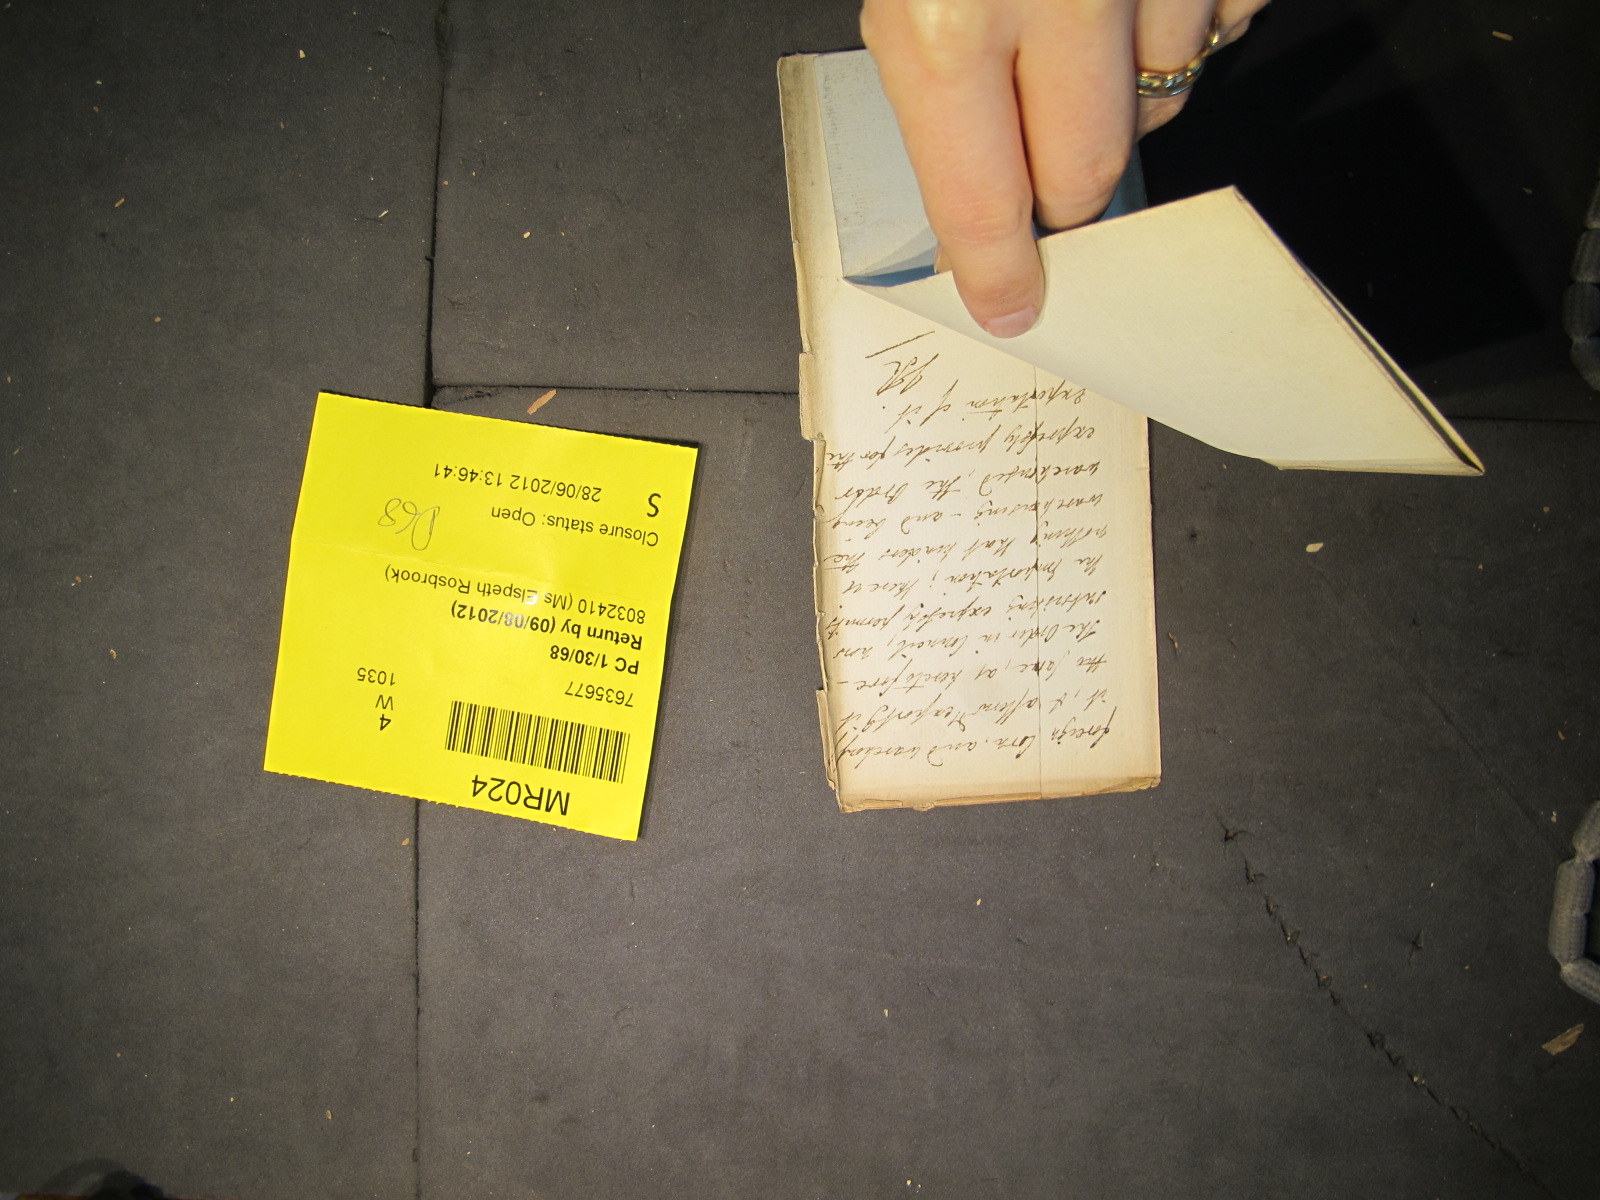 MR024
4
W
1035
7635677
PC 1/30/68
Return by (09/08/2012)
8032410 (Ms Elspeth Rosbrook)
Closure status: Open
D68
S
28/06/2012 13:46:41
foreign Corn. and
it, it allows
the same, as heretofore –
The Order in Council, now
subsisting expressly permits
the Importation; there is
nothing that hinders the
warehousing – and being
warehoused, the Order
expressly provides for the
exportation of it.